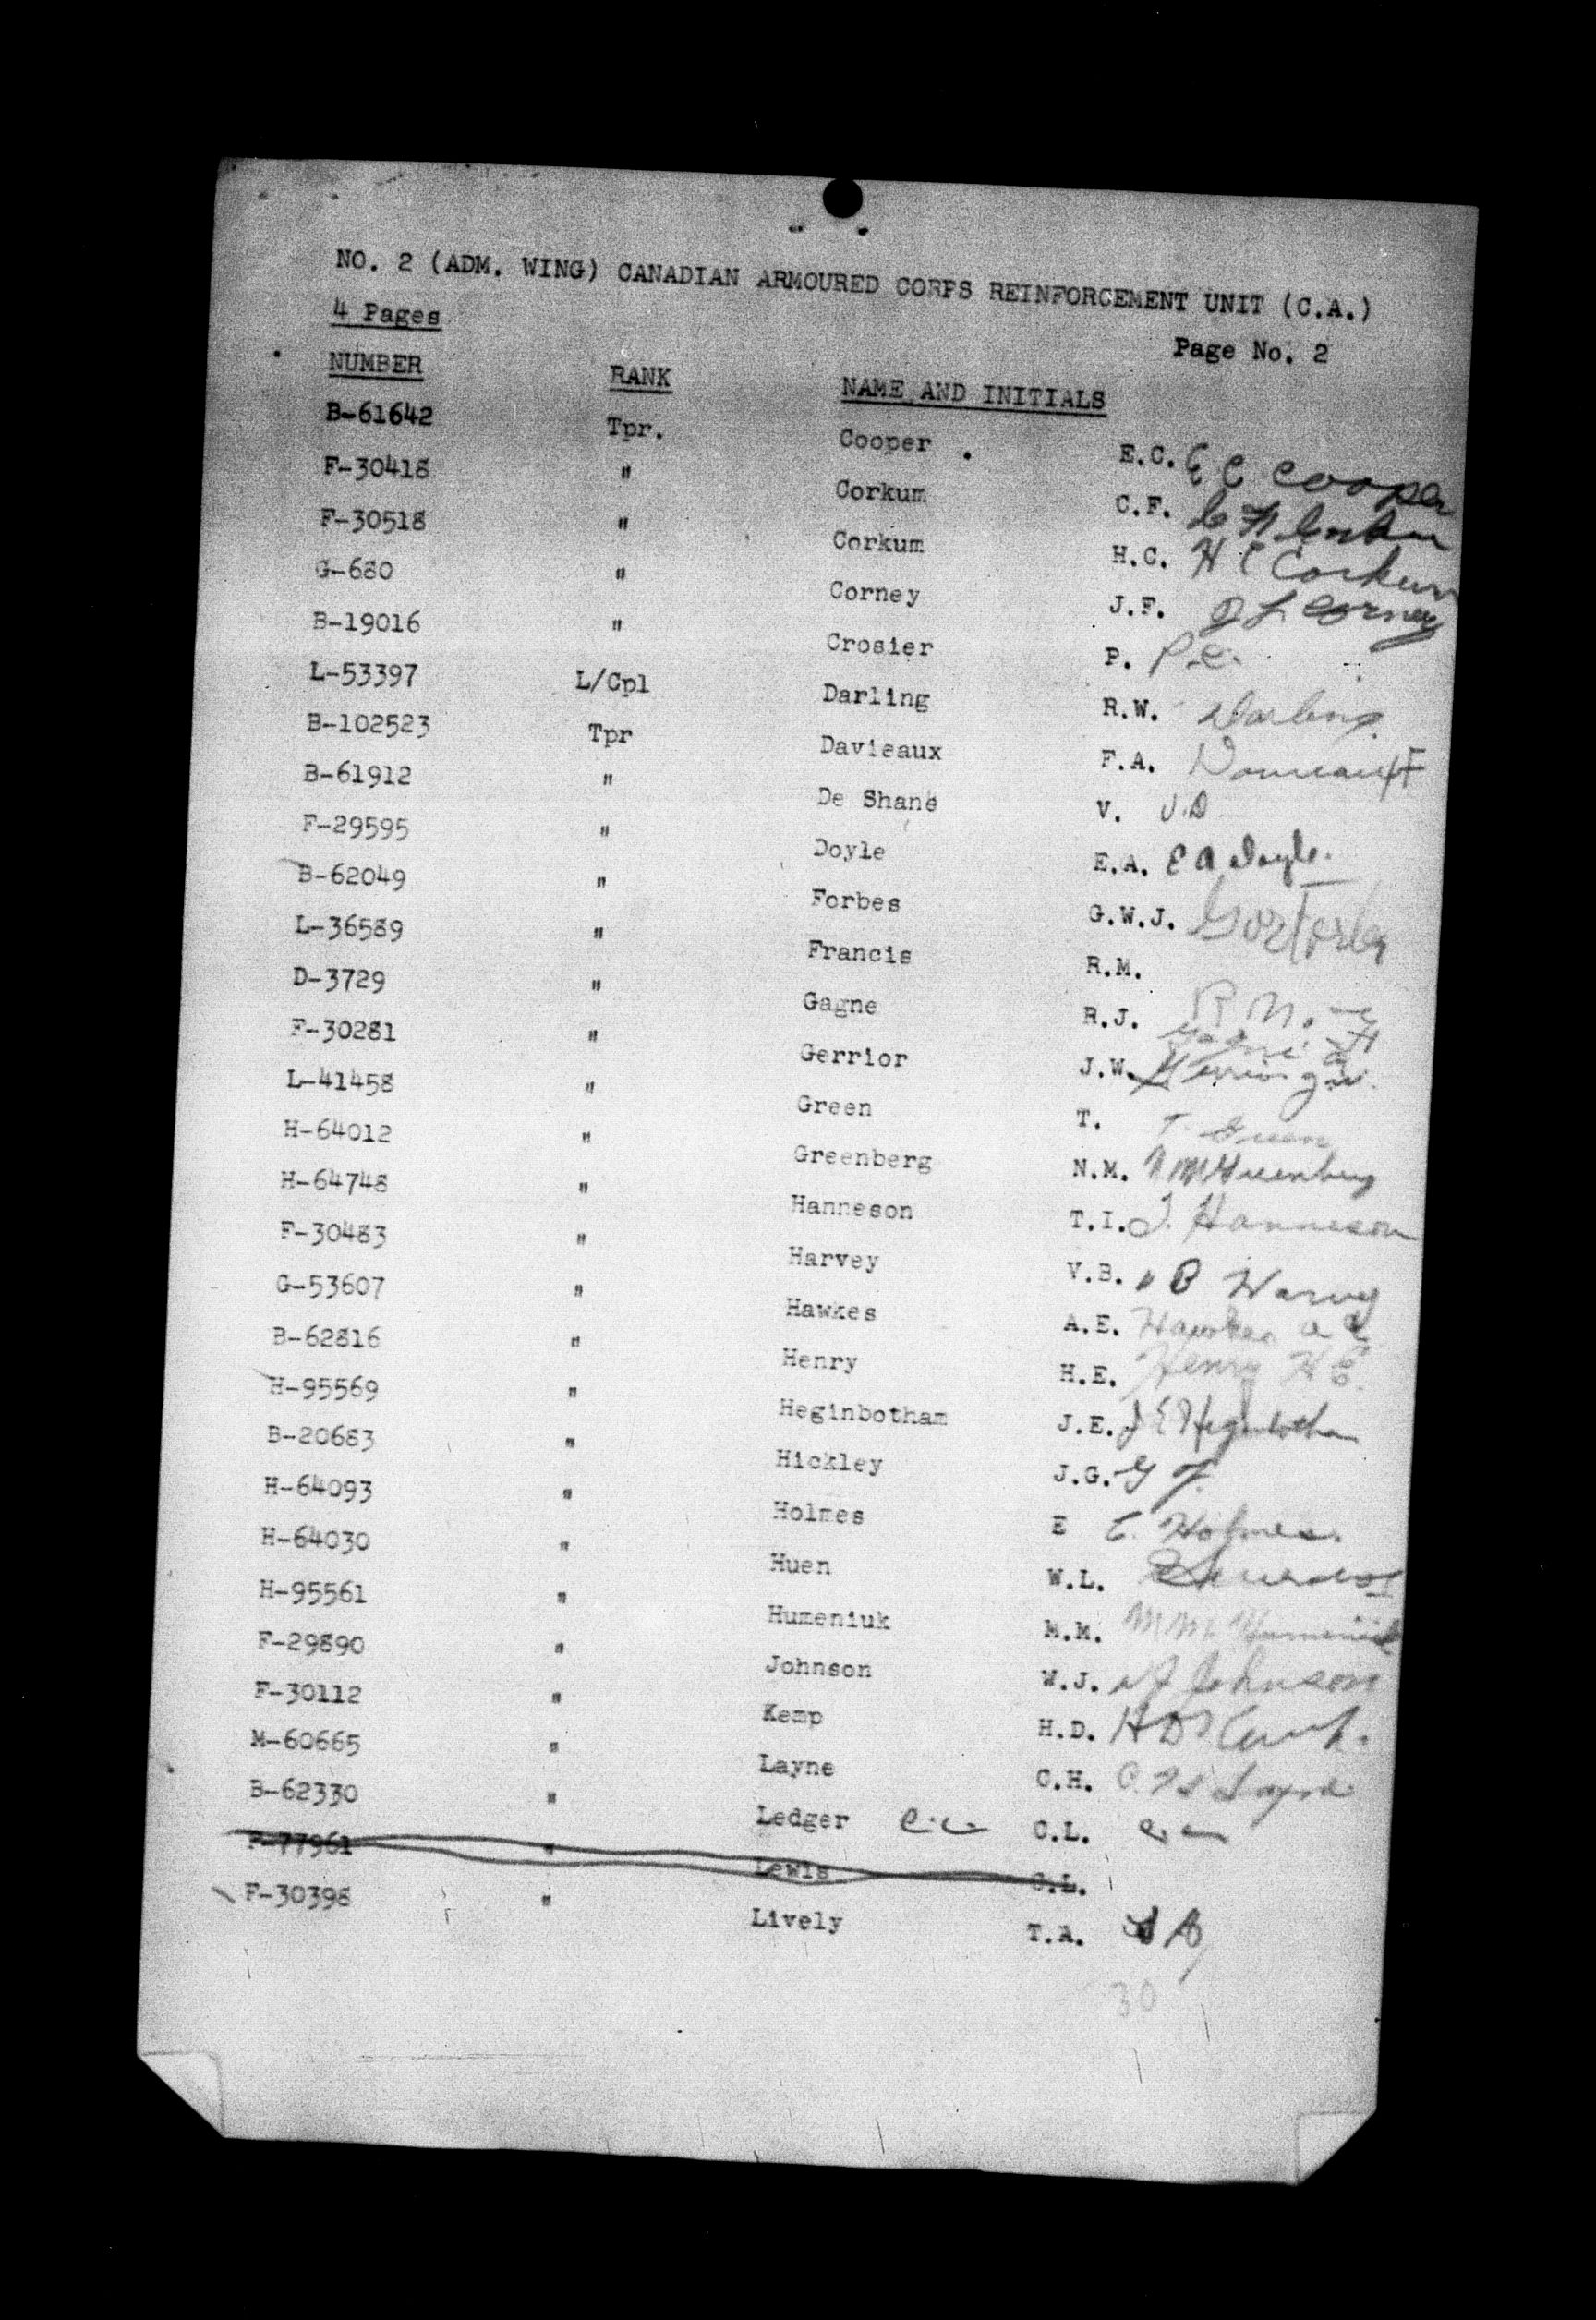 NO. 2 (ADM. WING) CANADIAN ARMOURED CORPS REINFORCEMENT UNIT (C.A.)
4 Pages Page No. 2
NUMBER RANK NAME AND INITIALS
B-61642 Tpr. Cooper . E.C. E C Cooper
F-30418 " Corkum C.F.
F-30518 " Corkum H.C. H C Corkum
G-680 " Corney J.F. Corney
B-19016 " Crosier P. P.C.
L-53397 L/Cpl Darling R.W. Darling
B-102523 Tpr Davieaux F.A.
B-61912 " De Shane V. V.D
F-29595 " Doyle E.A. E A Doyle.
B-62049 " Forbes G.W.J.
L-36589 " Francis R.M.
D-3729 " Gagne R.J.
F-30281 " Gerrior J.W.
L-41458 " Green T. T. Green
H-64012 " Greenberg N.M. N M Greenberg
H-64748 " Hanneson T.I. T. Hanneson
F-30483 " Harvey V.B. V B Harvey
G-53607 " Hawkes A.E. Hawkes A E
B-62816 " Henry H.E. Henry H E.
H-95569 " Heginbotham J.E. J E Heginbotham
B-20683 " Hickley J.G.
H-64093 " Holmes E E. Holmes.
H-64030 " Huen W.L.
H-95561 " Humeniuk M.M. M M. Humeniuk
F-29890 " Johnson W.J. W J Johnson
F-30112 " Kemp H.D. H D Kemp.
M-60665 " Layne C.H. C. H Layne
B-62330 " Ledger C.L.
F-77961 " Lewis C.L.
F-30398 " Lively T.A.
30